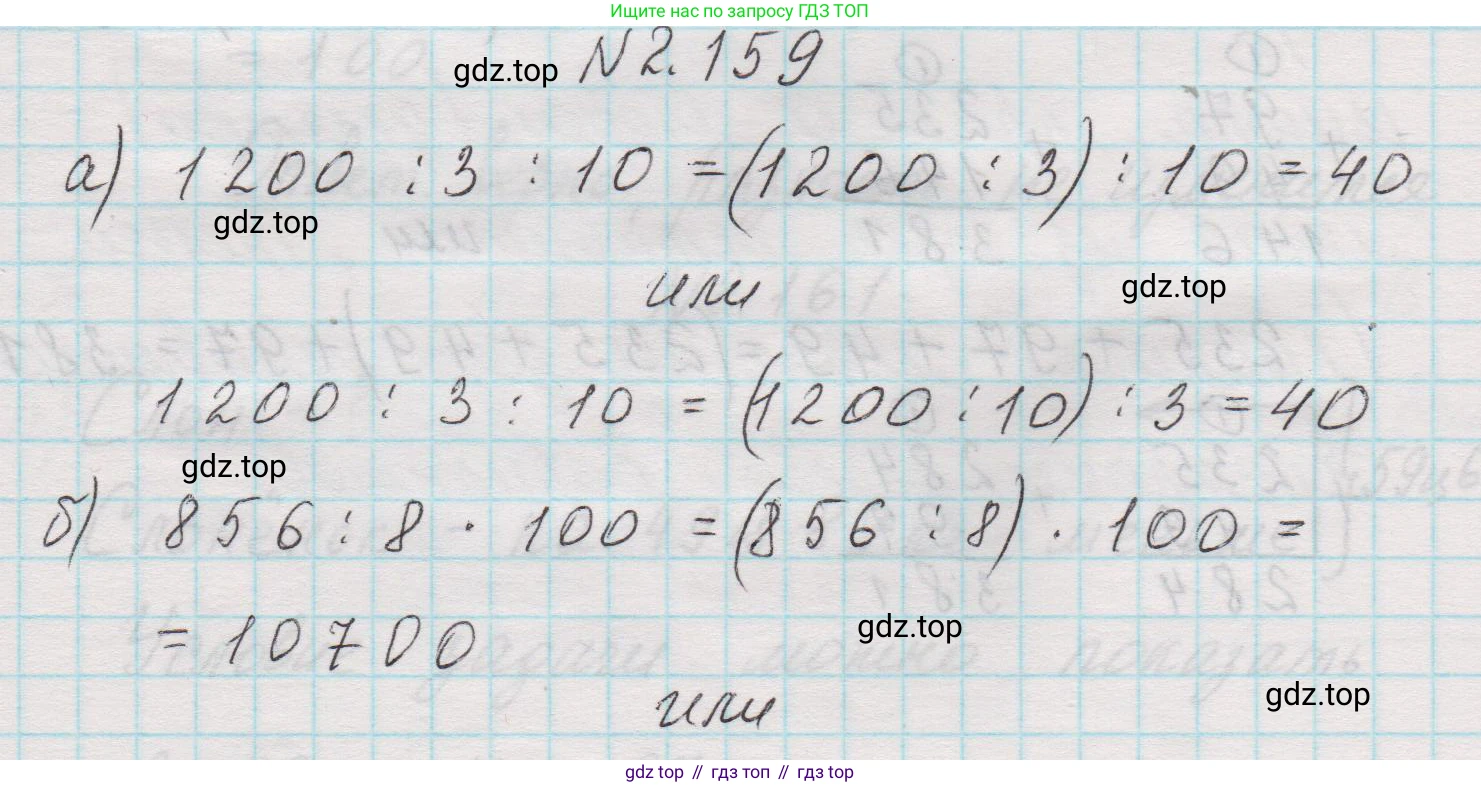 Ищите нас по запросу ГДЗ ТОП
gdz.top N 2.159
а) 1200 : 3 : 10 = (1200 : 3) : 10 = 40
gdz.top
или gdz.top
1200 : 3 : 10 = (1200 : 10) : 3 = 40
gdz.top
б) 856 : 8 · 100 = (856 : 8) · 100 =
= 10700 gdz.top
или gdz.top
gdz top // гдз топ // гдз top